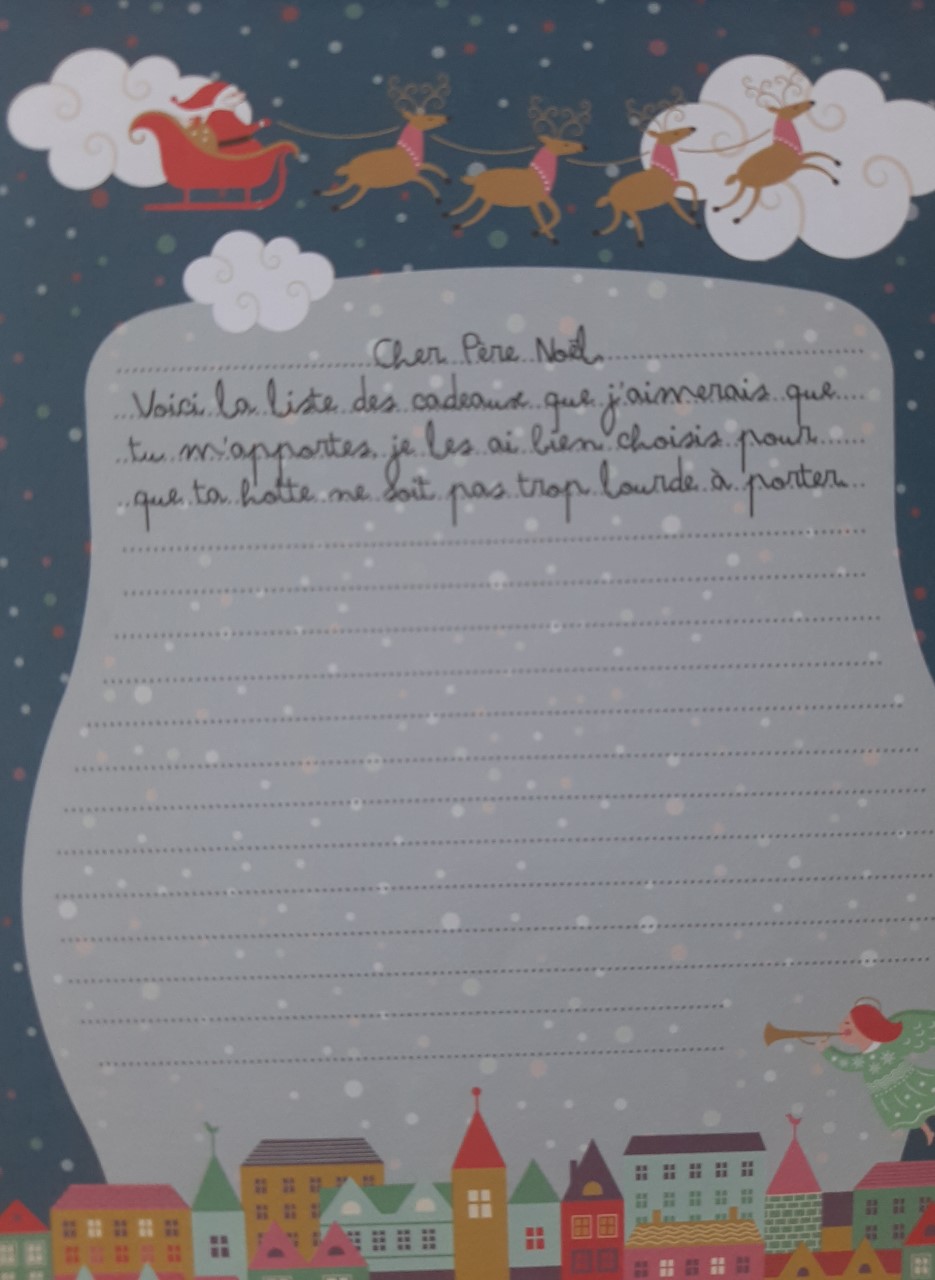 Cher Père Noël
Voici la liste des cadeaux que j'aimerais que
tu m'apportes, je les ai bien choisis pour
que ta hotte ne soit pas trop lourde à porter